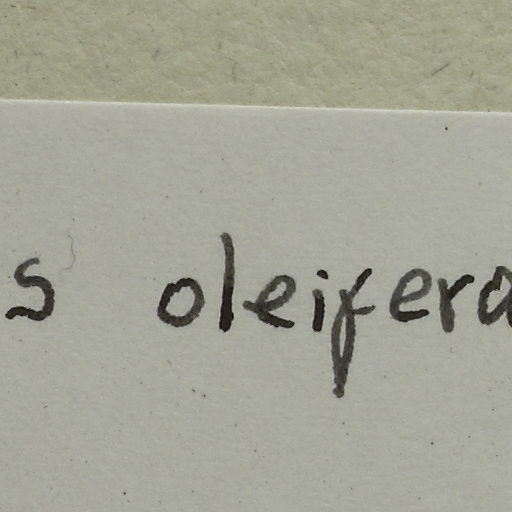 s oleifera